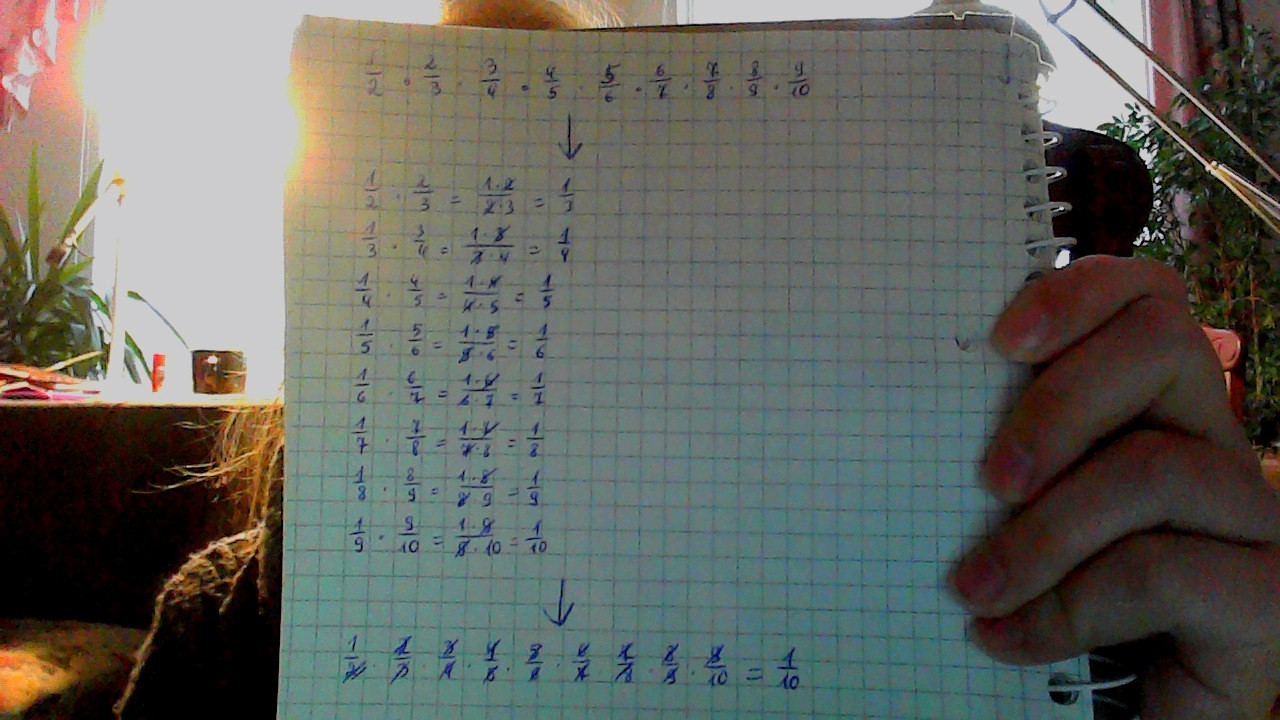 1/2 · 2/3 · 3/4 · 4/5 · 5/6 · 6/7 · 7/8 · 8/9 · 9/10
↓
1/2 · 2/3 = 1·2/2·3 = 1/3
1/3 · 3/4 = 1·3/3·4 = 1/4
1/4 · 4/5 = 1·4/4·5 = 1/5
1/5 · 5/6 = 1·5/5·6 = 1/6
1/6 · 6/7 = 1·6/6·7 = 1/7
1/7 · 7/8 = 1·7/7·8 = 1/8
1/8 · 8/9 = 1·8/8·9 = 1/9
1/9 · 9/10 = 1·9/9·10 = 1/10
↓
1/2 · 2/3 · 3/4 · 4/5 · 5/6 · 6/7 · 7/8 · 8/9 · 9/10 = 1/10